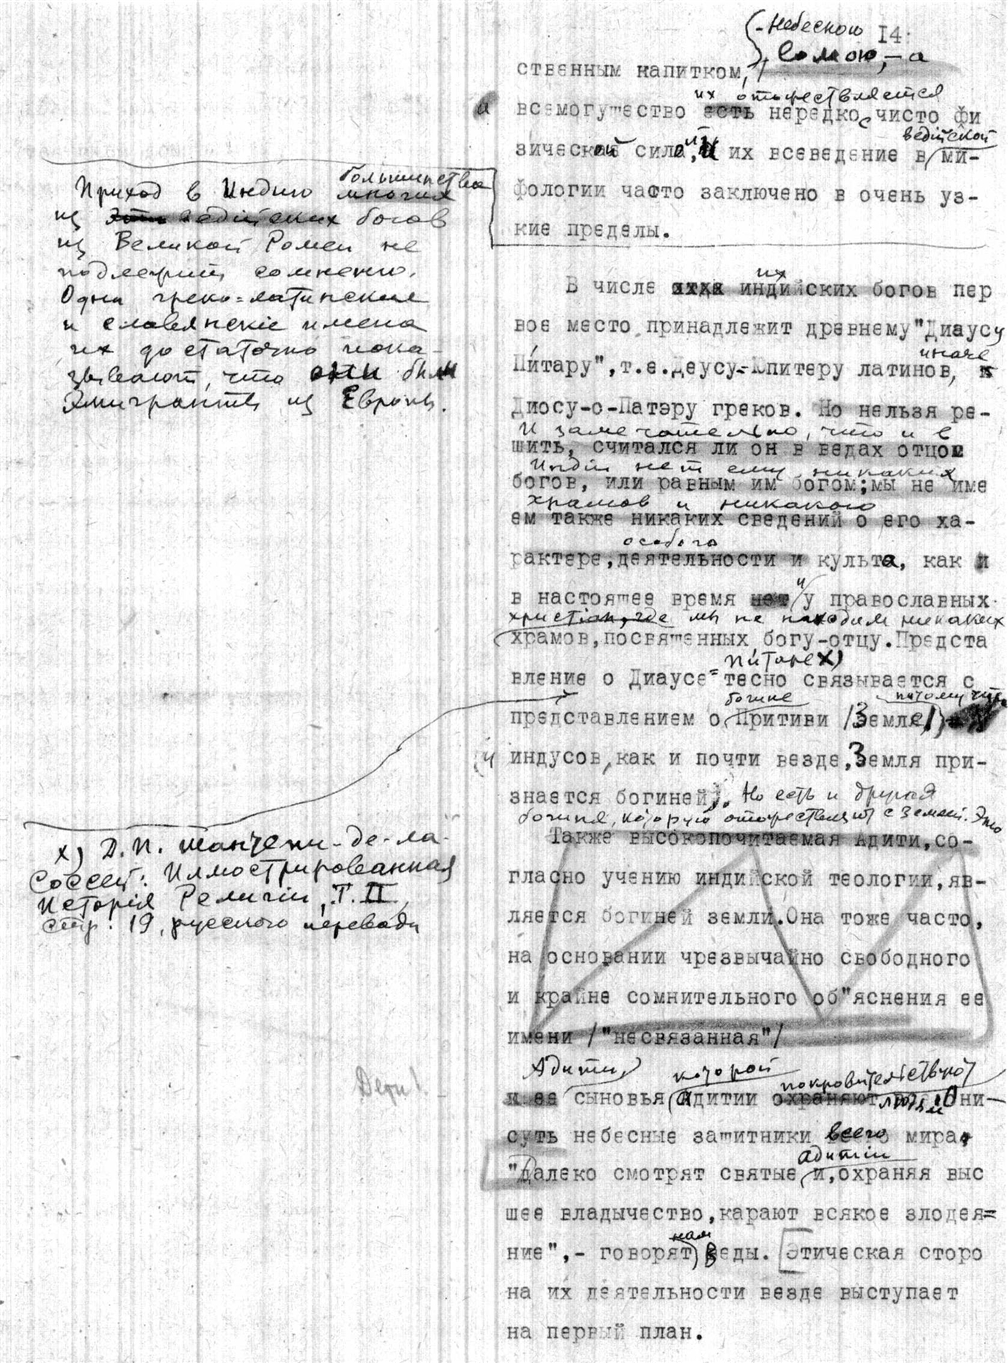 14.
- небесною
Сомою, - а
ственным напитком,
их отожествляется
и всемогущество есть нередко с чисто фи
ведийской
зической сила, и их всеведение в ми-
фологии часто заключено в очень уз-
кие пределы.
Приход в Индию большинства
многих
из ведийских богов
из Великой Ромеи не
подлежит сомнению.
Одни греко-латинские
и славянскіе имена
их достаточно пока-
зывают, что они были
Эмигранты из Европы.
их
В числе индийских богов пер
вое место принадлежит древнему "Диаусу
иначе
Питару", т.е. Деусу-Юпитеру латинов,
Диосу-о-Патэру греков. Но нельзя ре-
И замечательно, что и в
шить, считался ли он в ведах отцом
Индіи нет ему никаких
богов, или равным им богом; мы не име
храмов и никакого
ем также никаких сведений о его ха-
особого
рактере, деятельности и культа, как и
и
в настоящее время нет у православных
христіан, где мы не находим никаких
храмов, посвященных богу-отцу. Предста
Питаре х)
вление о Диаусе= тесно связывается с
богине потому что
представлением о Притиви /Земля/)
индусов, как и почти везде, Земля при-
знается богиней). Но есть и другая
богиня, которую отожествляют с Землей. Это
Также высокопочитаемая Адити, со-
гласно учению индийской теологии, яв-
ляется богиней земли. Она тоже часто,
на основании чрезвычайно свободного
и крайне сомнительного об"яснения ее
имени /"несвязанная"/
х) Д. П. Шантепи-де-ла-
Соссей: Иллюстрированная
Исторія Религіи, Т. II,
стр. 19, русского перевода
Адити, которой покровительствуют
и ее сыновья Адитии охраняют людям Они-
суть небесные защитники всего мира.
адитіи
"Далеко смотрят святые и, охраняя выс
шее владычество, карают всякое злодея=
нам
ние",- говорят Веды. Этическая сторо
на их деятельности везде выступает
на первый план.